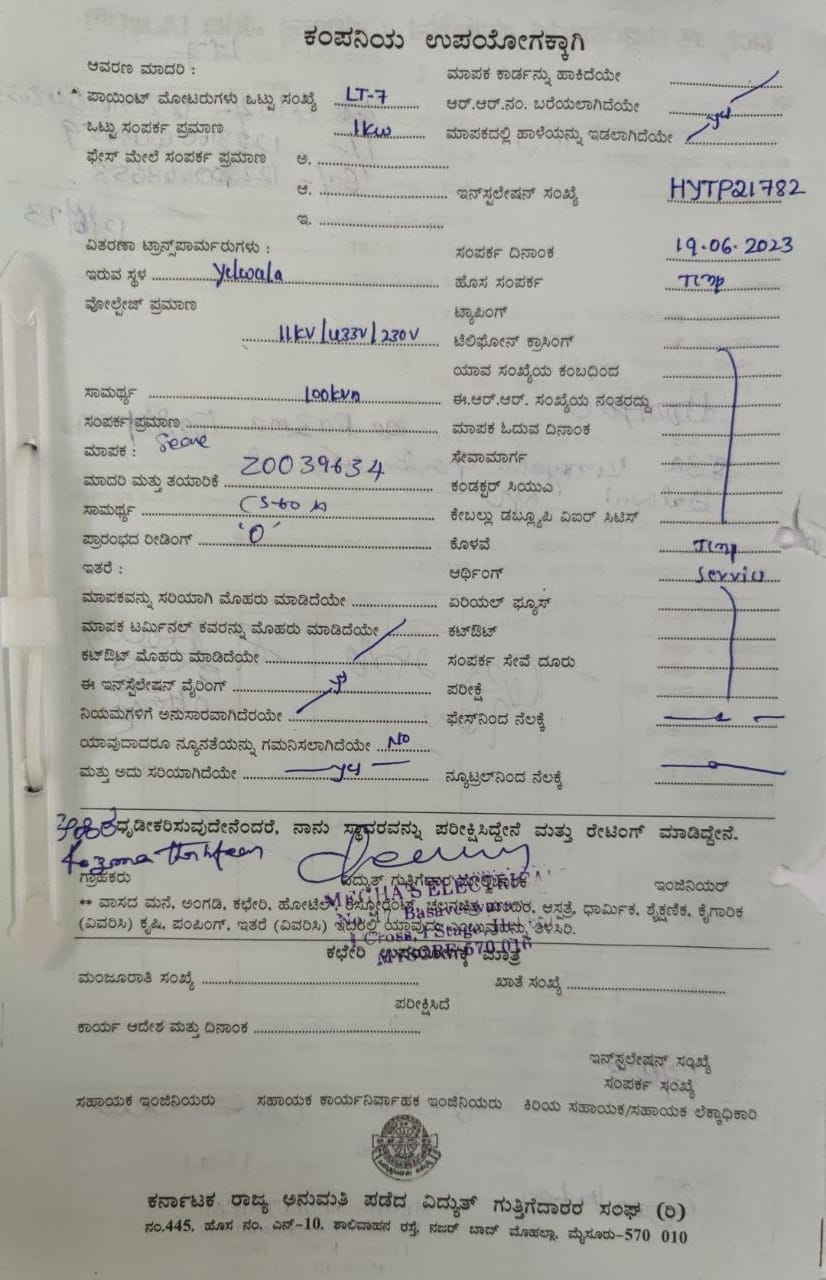 ಕಂಪನಿಯ ಉಪಯೋಗಕ್ಕಾಗಿ
ಆವರಣ ಮಾದರಿ :
ಪಾಯಿಂಟ್ ಮೋಟರುಗಳು ಒಟ್ಟು ಸಂಖ್ಯೆ LT-7
ಒಟ್ಟು ಸಂಪರ್ಕ ಪ್ರಮಾಣ 1kw
ಫೇಸ್ ಮೇಲೆ ಸಂಪರ್ಕ ಪ್ರಮಾಣ ಅ.
ಆ.
ಇ.
ವಿತರಣಾ ಟ್ರಾನ್ಸ್‌ಪಾರ್ಮರುಗಳು :
ಇರುವ ಸ್ಥಳ Yelwala
ವೋಲ್ಟೇಜ್ ಪ್ರಮಾಣ
11KV/433V/230V
ಸಾಮರ್ಥ್ಯ 100kva
ಸಂಪರ್ಕ ಪ್ರಮಾಣ
ಮಾಪಕ :
ಮಾದರಿ ಮತ್ತು ತಯಾರಿಕೆ 20039634
ಸಾಮರ್ಥ್ಯ
ಪ್ರಾರಂಭದ ರೀಡಿಂಗ್ '0'
ಇತರೆ :
ಮಾಪಕವನ್ನು ಸರಿಯಾಗಿ ಮೊಹರು ಮಾಡಿದೆಯೇ
ಮಾಪಕ ಟರ್ಮಿನಲ್ ಕವರನ್ನು ಮೊಹರು ಮಾಡಿದೆಯೇ
ಕಟ್‌ಔಟ್ ಮೊಹರು ಮಾಡಿದೆಯೇ
ಈ ಇನ್‌ಸ್ಟಲೇಷನ್ ವೈರಿಂಗ್
ನಿಯಮಗಳಿಗೆ ಅನುಸಾರವಾಗಿದೆರಯೇ
ಯಾವುದಾದರೂ ನ್ಯೂನತೆಯನ್ನು ಗಮನಿಸಲಾಗಿದೆಯೇ NO
ಮತ್ತು ಅದು ಸರಿಯಾಗಿದೆಯೇ
ಮಾಪಕ ಕಾರ್ಡನ್ನು ಹಾಕಿದೆಯೇ
ಆರ್.ಆರ್.ನಂ. ಬರೆಯಲಾಗಿದೆಯೇ
ಮಾಪಕದಲ್ಲಿ ಹಾಳೆಯನ್ನು ಇಡಲಾಗಿದೆಯೇ
ಇನ್‌ಸ್ಟಲೇಷನ್ ಸಂಖ್ಯೆ HYTP21782
ಸಂಪರ್ಕ ದಿನಾಂಕ 19.06.2023
ಹೊಸ ಸಂಪರ್ಕ
ಟ್ಯಾಪಿಂಗ್
ಟೆಲಿಫೋನ್ ಕ್ರಾಸಿಂಗ್
ಯಾವ ಸಂಖ್ಯೆಯ ಕಂಬದಿಂದ
ಈ.ಆರ್.ಆರ್. ಸಂಖ್ಯೆಯ ನಂತರದ್ದು
ಮಾಪಕ ಓದುವ ದಿನಾಂಕ
ಸೇವಾಮಾರ್ಗ
ಕಂಡಕ್ಟರ್ ಸಿಯುಎ
ಕೇಬಲ್ಲು ಡಬ್ಲ್ಯೂಪಿ ವಿಐರ್ ಸಿಟಿಸ್
ಕೊಳವೆ
ಆರ್ಥಿಂಗ್ Service
ಏರಿಯಲ್ ಫ್ಯೂಸ್
ಕಟ್‌ಔಟ್
ಸಂಪರ್ಕ ಸೇವೆ ದೂರು
ಪರೀಕ್ಷೆ
ಫೇಸ್‌ನಿಂದ ನೆಲಕ್ಕೆ
ನ್ಯೂಟ್ರಲ್‌ನಿಂದ ನೆಲಕ್ಕೆ
ಧೃಡೀಕರಿಸುವುದೇನೆಂದರೆ, ನಾನು ಸ್ಥಾವರವನ್ನು ಪರೀಕ್ಷಿಸಿದ್ದೇನೆ ಮತ್ತು ರೇಟಿಂಗ್ ಮಾಡಿದ್ದೇನೆ.
ಗ್ರಾಹಕರು ವಿದ್ಯುತ್ ಗುತ್ತಿಗೆದಾರ ಇಂಜಿನಿಯರ್
** ವಾಸದ ಮನೆ, ಅಂಗಡಿ, ಕಛೇರಿ, ಹೋಟೆಲ್, ರೆಸ್ಟೋರೆಂಟ್, ಆಸ್ಪತ್ರೆ, ಧಾರ್ಮಿಕ, ಶೈಕ್ಷಣಿಕ, ಕೈಗಾರಿಕ
(ವಿವರಿಸಿ) ಕೃಷಿ, ಪಂಪಿಂಗ್, ಇತರೆ (ವಿವರಿಸಿ) ಇದರಲ್ಲಿ ಯಾವುದು ಎಂಬುದನ್ನು ತಿಳಿಸಿರಿ.
MYSORE-570 016
ಕಛೇರಿ ಉಪಯೋಗಕ್ಕೆ ಮಾತ್ರ
ಮಂಜೂರಾತಿ ಸಂಖ್ಯೆ ಖಾತೆ ಸಂಖ್ಯೆ
ಪರೀಕ್ಷಿಸಿದೆ
ಕಾರ್ಯ ಆದೇಶ ಮತ್ತು ದಿನಾಂಕ
ಇನ್‌ಸ್ಟಲೇಷನ್ ಸಂಖ್ಯೆ
ಸಂಪರ್ಕ ಸಂಖ್ಯೆ
ಸಹಾಯಕ ಇಂಜಿನಿಯರು ಸಹಾಯಕ ಕಾರ್ಯನಿರ್ವಾಹಕ ಇಂಜಿನಿಯರು ಕಿರಿಯ ಸಹಾಯಕ/ಸಹಾಯಕ ಲೆಕ್ಕಾಧಿಕಾರಿ
ಕರ್ನಾಟಕ ರಾಜ್ಯ ಅನುಮತಿ ಪಡೆದ ವಿದ್ಯುತ್ ಗುತ್ತಿಗೆದಾರರ ಸಂಘ (ರಿ)
ನಂ.445, ಹೊಸ ನಂ. ಎನ್-10, ಶಾಲಿವಾಹನ ರಸ್ತೆ, ನಜರ್ ಬಾದ್ ಮೊಹಲ್ಲಾ, ಮೈಸೂರು-570 010